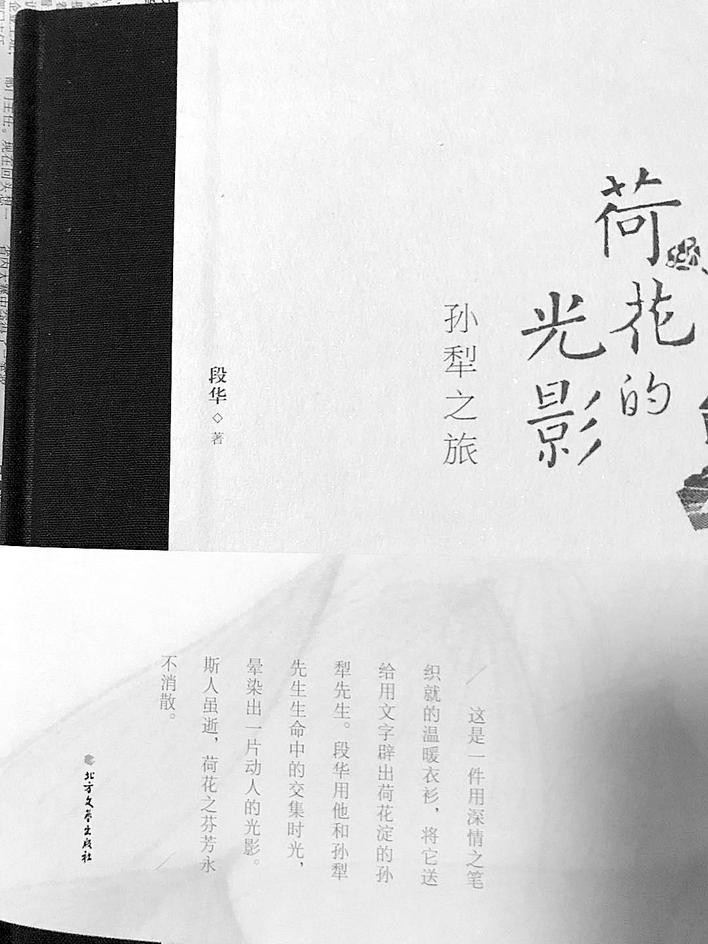 荷花的
光影
孙犁之旅
段华◇著
这是一件用深情之笔
织就的温暖衣衫，将它送
给用文字辟出荷花淀的孙
犁先生。段华用他和孙犁
先生生命中的交集时光，
晕染出一片动人的光影。
斯人虽逝，荷花之芬芳永
不消散。
北方文艺出版社